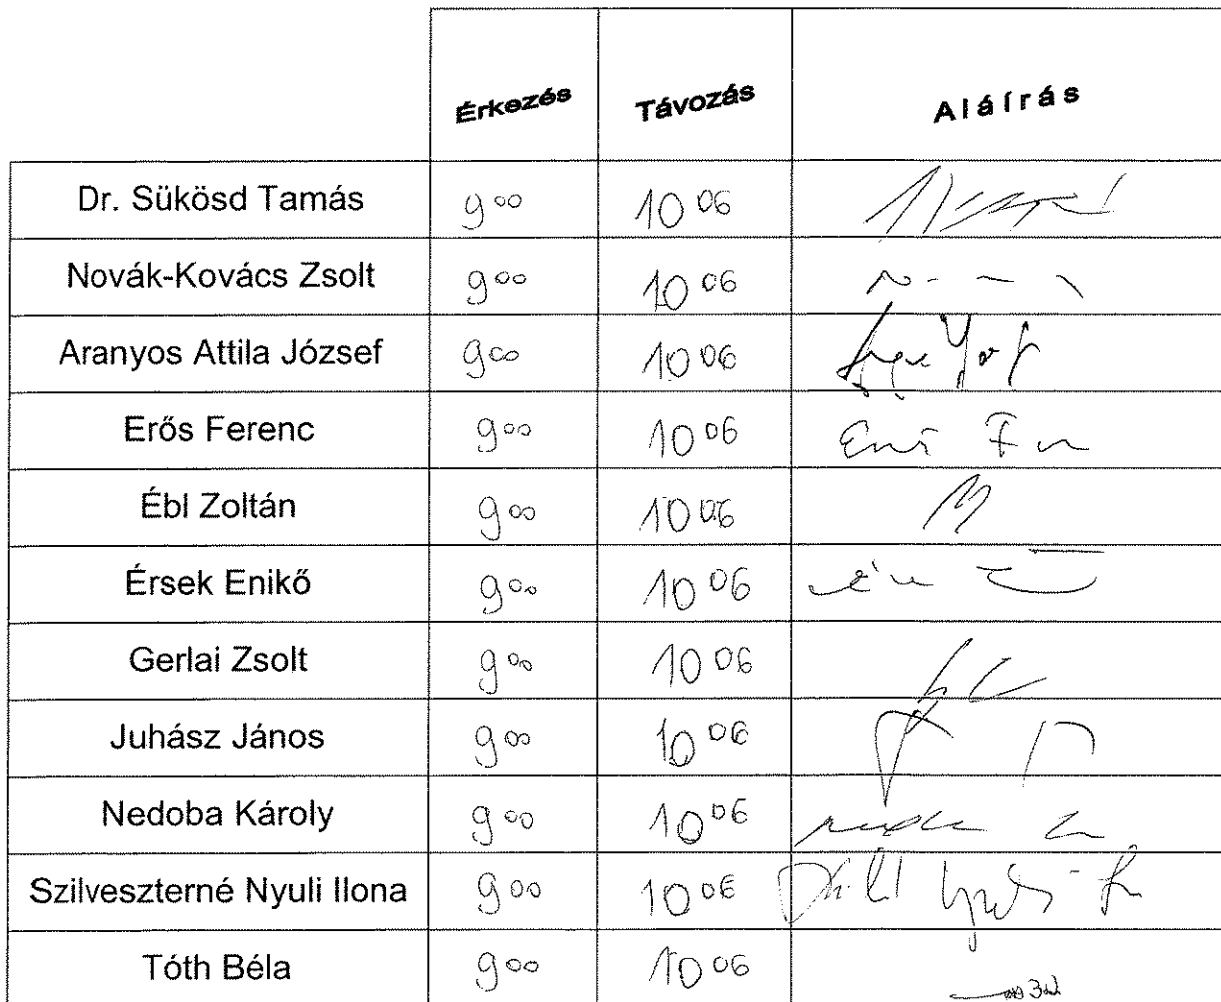 Érkezés Távozás Aláírás
Dr. Sükösd Tamás 9 00 10 06
Novák-Kovács Zsolt 9 00 10 06
Aranyos Attila József 9 00 10 06
Erős Ferenc 9 00 10 06
Ébl Zoltán 9 00 10 06
Érsek Enikő 9 00 10 06
Gerlai Zsolt 9 00 10 06
Juhász János 9 00 10 06
Nedoba Károly 9 00 10 06
Szilveszterné Nyuli Ilona 9 00 10 06
Tóth Béla 9 00 10 06